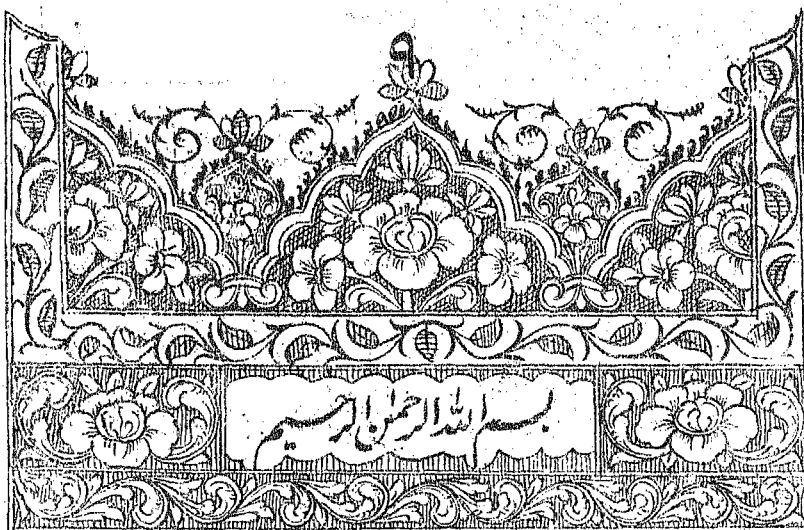 ۹
بسم الله الرحمن الرحیم